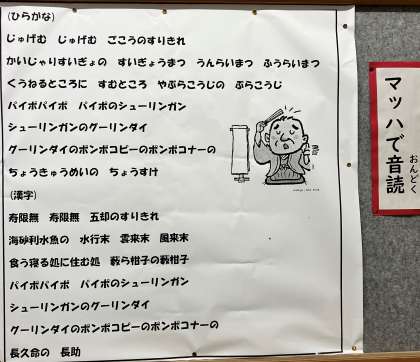 (ひらがな)
じゅげむ じゅげむ ごこうのすりきれ
かいじゃりすいぎょの すいぎょうまつ うんらいまつ ふうらいまつ
くうねるところに すむところ やぶらこうじの ぶらこうじ
パイポパイポ パイポのシューリンガン
シューリンガンのグーリンダイ
グーリンダイのポンポコピーのポンポコナーの
ちょうきゅうめいの ちょうすけ
(漢字)
寿限無 寿限無 五却のすりきれ
海砂利水魚の 水行末 雲来末 風来末
食う寝る処に住む処 藪ら柑子の藪柑子
パイポパイポ パイポのシューリンガン
シューリンガンのグーリンダイ
グーリンダイのポンポコピーのポンポコナーの
長久命の 長助
マッハで音読
おんどく